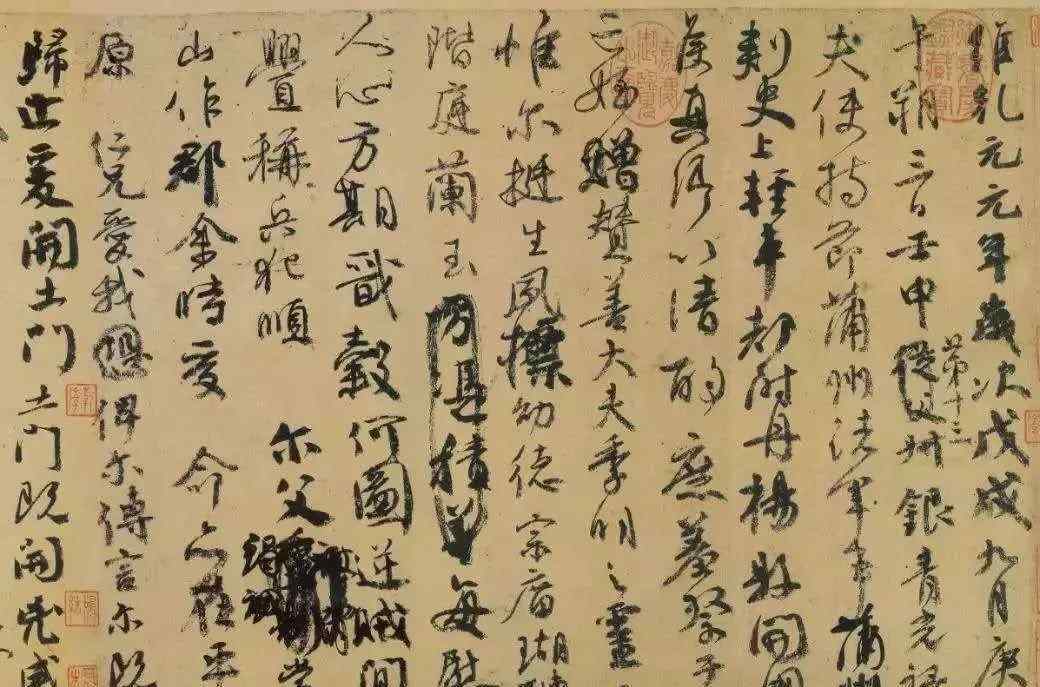 維乾元元年歲次戊戌九月庚
午朔三日壬申第十三從父叔銀青光祿
夫使持節蒲州諸軍事蒲州
刺史上輕車都尉丹楊縣開國
侯真卿以清酌庶羞祭于
亡姪贈贊善大夫季明之靈
惟尔挺生夙標幼德宗廟瑚璉
階庭蘭玉方憑積善每慰
人心方期戩穀何圖逆賊間
釁稱兵犯順 尔父竭誠常
山作郡余時受 命亦在平
原 仁兄愛我恐俾尔傳言尔既
歸止爰開土門土門既開兇威